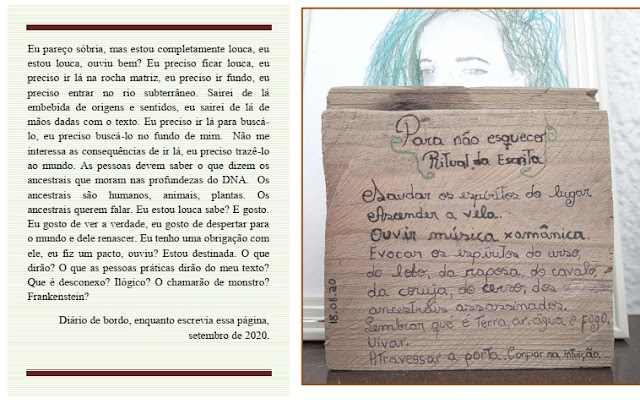 Eu pareço sóbria, mas estou completamente louca, eu
estou louca, ouviu bem? Eu preciso ficar louca, eu
preciso ir lá na rocha matriz, eu preciso ir fundo, eu
preciso entrar no rio subterrâneo. Sairei de lá
embebida de origens e sentidos, eu sairei de lá de
mãos dadas com o texto. Eu preciso ir lá para buscá-
lo, eu preciso buscá-lo no fundo de mim. Não me
interessa as consequências de ir lá, eu preciso trazê-lo
ao mundo. As pessoas devem saber o que dizem os
ancestrais que moram nas profundezas do DNA. Os
ancestrais são humanos, animais, plantas. Os
ancestrais querem falar. Eu estou louca sabe? E gosto.
Eu gosto de ver a verdade, eu gosto de despertar para
o mundo e dele renascer. Eu tenho uma obrigação com
ele, eu fiz um pacto, ouviu? Estou destinada. O que
dirão? O que as pessoas práticas dirão do meu texto?
Que é desconexo? Ilógico? O chamarão de monstro?
Frankenstein?
Diário de bordo, enquanto escrevia essa página,
setembro de 2020.
Para não esquecer
Ritual da Escrita
Saudar os espíritos do lugar
Ascender a vela.
Ouvir música xamânica.
Evocar os espíritos do urso,
do lobo, da raposa, do cavalo,
da coruja, do cervo, dos
ancestrais assassinados.
Lembrar que é terra, ar, água e fogo.
Uivar.
Atravessar a porta. Confiar na intuição.
18.08.20